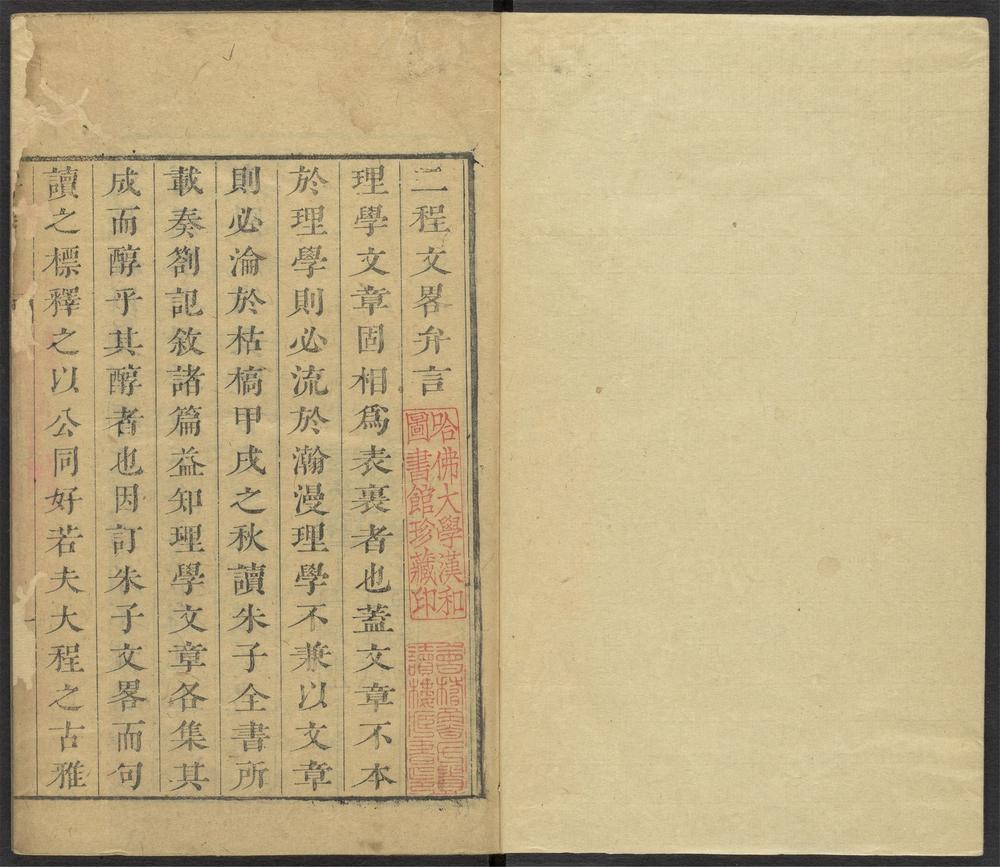 二程文畧弁言
理學文章固相爲表裏者也蓋文章不本
於理學則必流於瀚漫理學不兼以文章
則必淪於枯槁甲戌之秋讀朱子全書所
載奏劄記敘諸篇益知理學文章各集其
成而醇乎其醇者也因訂朱子文畧而句
讀之標釋之以公同好若夫大程之古雅
哈佛大學漢和
圖書館珍藏印